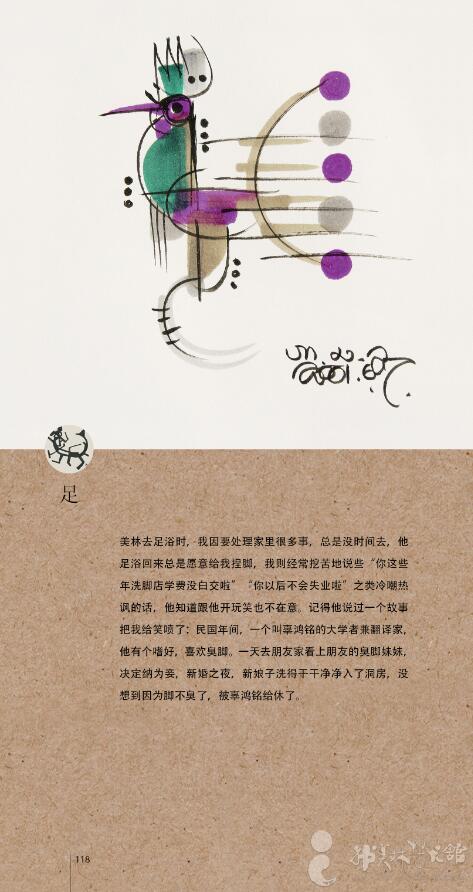 足
美林去足浴时，我因要处理家里很多事，总是没时间去，他
足浴回来总是愿意给我捏脚，我则经常挖苦地说些“你这些
年洗脚店学费没白交啦”“你以后不会失业啦”之类冷嘲热
讽的话，他知道跟他开玩笑也不在意。记得他说过一个故事
把我给笑喷了：民国年间，一个叫辜鸿铭的大学者兼翻译家，
他有个嗜好，喜欢臭脚。一天去朋友家看上朋友的臭脚妹妹，
决定纳为妾，新婚之夜，新娘子洗得干干净净入了洞房，没
想到因为脚不臭了，被辜鸿铭给休了。
118